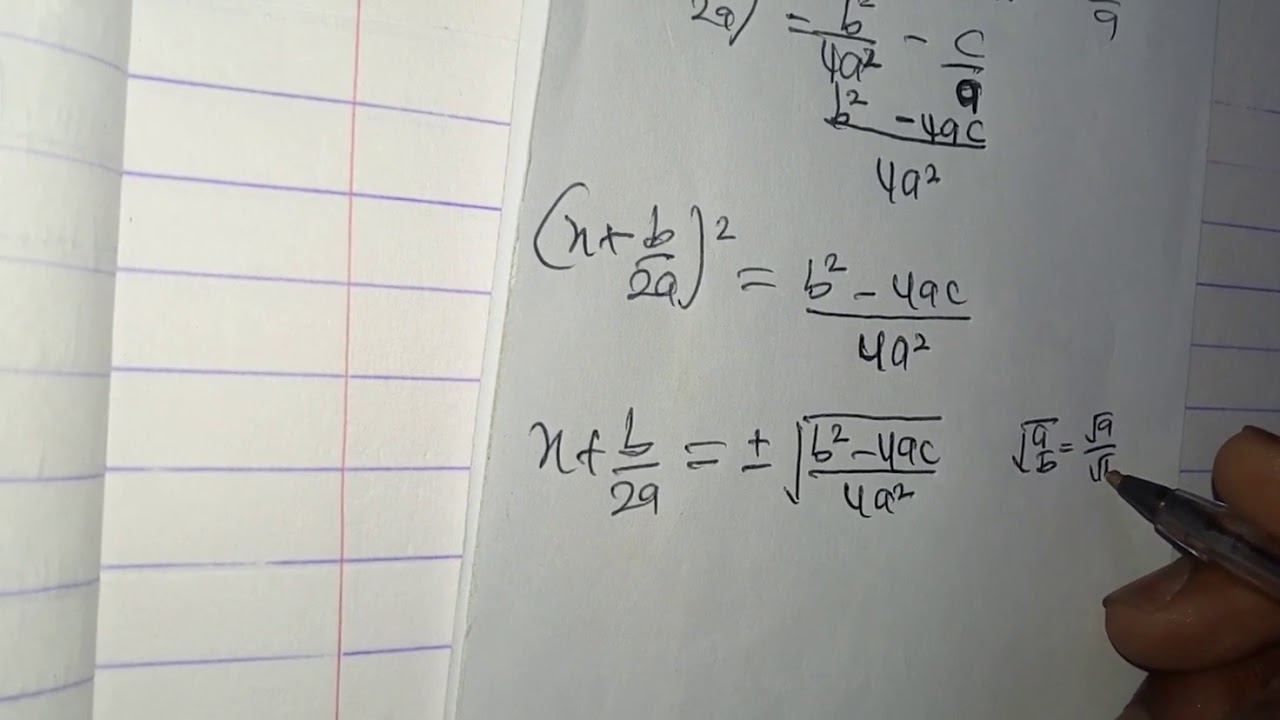 2a) = b²/4a² - c/a
b² - 4ac/4a²
(x + b/2a)² = b² - 4ac/4a²
x + b/2a = ± √(b² - 4ac/4a²) √(a/b) = √a/√